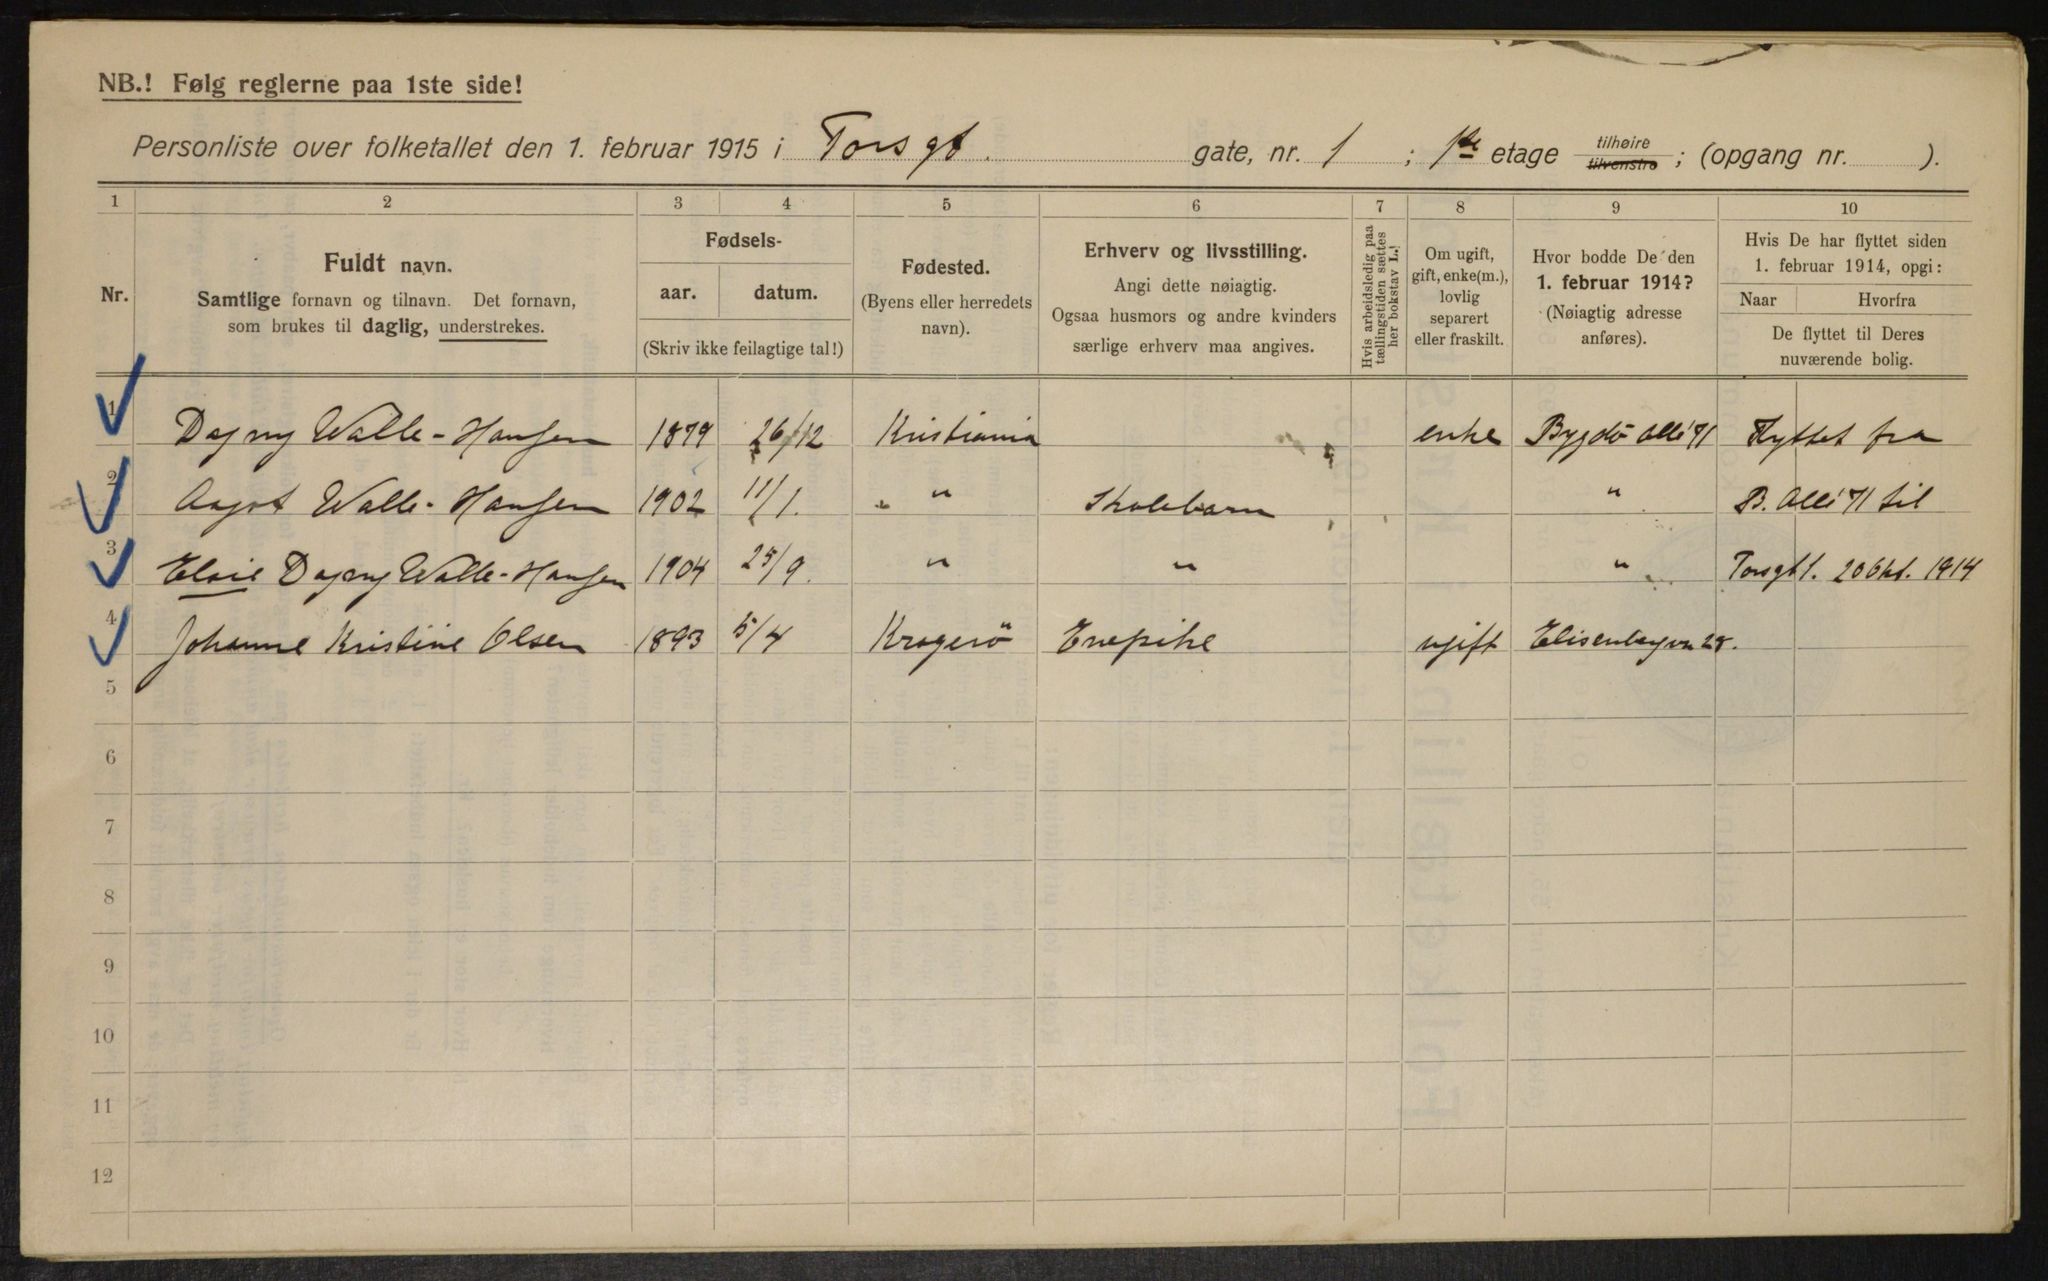 NB.! Følg reglerne paa 1ste side!
Personliste over folketallet den 1. februar 1915 i Torsgt. gate, nr. 1 ; 1ste etage tilhøire tilvenstre ; (opgang nr. ).
1 2 3 4 5 6 7 8 9 10
Nr.
Fuldt navn.
Samtlige fornavn og tilnavn. Det fornavn,
som brukes til daglig, understrekes.
Fødsels-
aar. datum.
(Skriv ikke feilagtige tal!)
Fødested.
(Byens eller herredets
navn).
Erhverv og livsstilling.
Angi dette nøiagtig.
Ogsaa husmors og andre kvinders
særlige erhverv maa angives.
Hvis arbeidsledig paa
tællingstiden sættes
her bokstav L.!
Om ugift,
gift, enke(m.),
lovlig
separert
eller fraskilt.
Hvor bodde De den
1. februar 1914?
(Nøiagtig adresse
anføres).
Hvis De har flyttet siden
1. februar 1914, opgi:
Naar Hvorfra
De flyttet til Deres
nuværende bolig.
1 Dagny Walle-Hansen 1879 26/12 Kristiania enke Bygdö alle 71 Flyttet fra
2 Aagot Walle-Hansen 1902 11/1. " Skolebarn " B. Allé 71 til
3 Elsie Dagny Walle-Hansen 1904 25/9. " " " Torsgt 1. 20 Okt. 1914
4 Johanne Kristine Olsen 1893 5/4 Kragerö Enepike ugift Elisenbergvn 28.
5
6
7
8
9
10
11
12